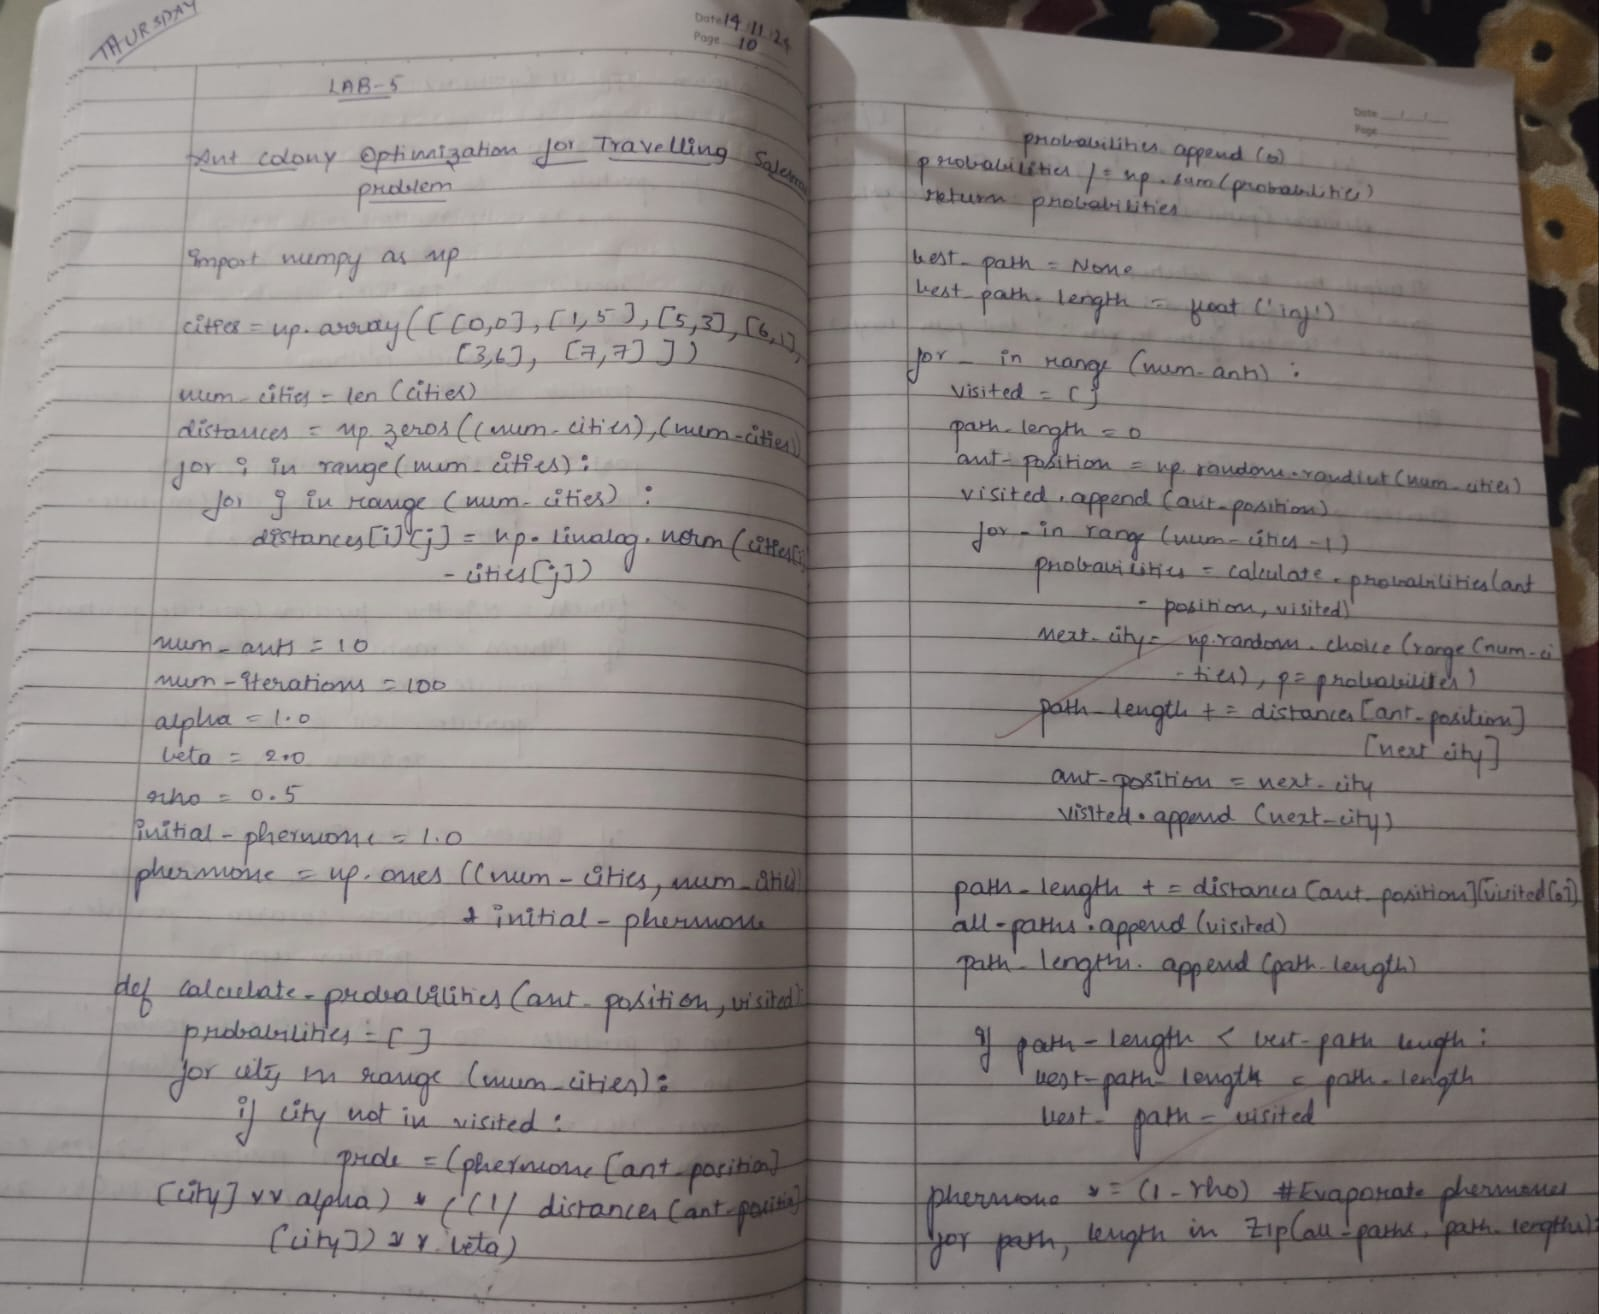 THURSDAY
Date 14/11/24
Page 10
LAB-5
Ant colony Optimization for Travelling Salesman
problem
import numpy as np
cities = np.array([[0,0],[1,5],[5,3],[6,1],
[3,6], [7,7]])
num-cities = len(cities)
distances = np.zeros((num-cities),(num-cities))
for i in range(num-cities):
for j in range (num-cities):
distances[i][j] = np.linalog.norm(cities[i]
- cities[j])
num-ants = 10
num-iterations = 100
alpha = 1.0
beta = 2.0
rho = 0.5
initial-phermone = 1.0
phermone = np.ones((num-cities, num-cities)
* initial-phermone
def calculate-probabilities(ant-position, visited):
probabilities = []
for city in range (num-cities):
if city not in visited:
prob = (phermone[ant-position]
[city] ** alpha) * ((1/ distances[ant-position]
[city]) ** beta)
Date / /
Page
probabilities append (0)
probabilities /= np.sum(probabilities)
return probabilities
best-path = None
best-path-length = float ('inf')
for - in range (num-ants):
visited = []
path-length = 0
ant-position = np.random.randint(num-cities)
visited.append (ant-position)
for - in rang (num-cities -1)
probabilities = calculate-probabilities(ant
-position, visited)
next-city = np.random.choice (range(num-ci
-ties), p=probabilites)
path-length += distances[ant-position]
[next city]
ant-position = next-city
visited.append (next-city)
path-length += distances[ant-position][visited[0]]
all-paths.append (visited)
path-lengths.append (path-length)
if path-length < best-path length:
best-path-length = path-length
best-path = visited
phermone *= (1-rho) #Evaporate phermones
for path, length in zip(all-paths, path-lengths):